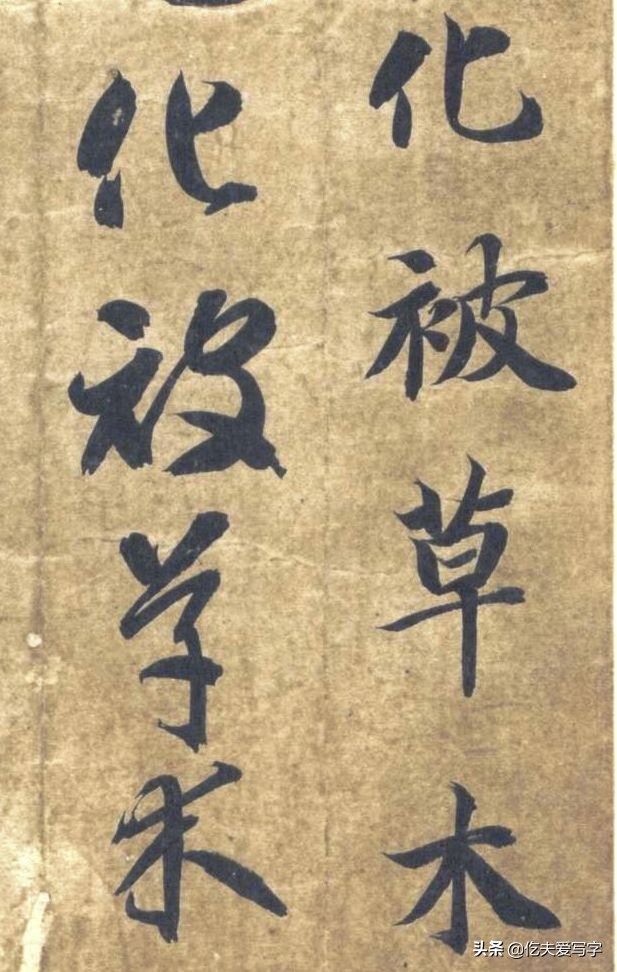 化被草木
化被草木
头条 @仡夫爱写字